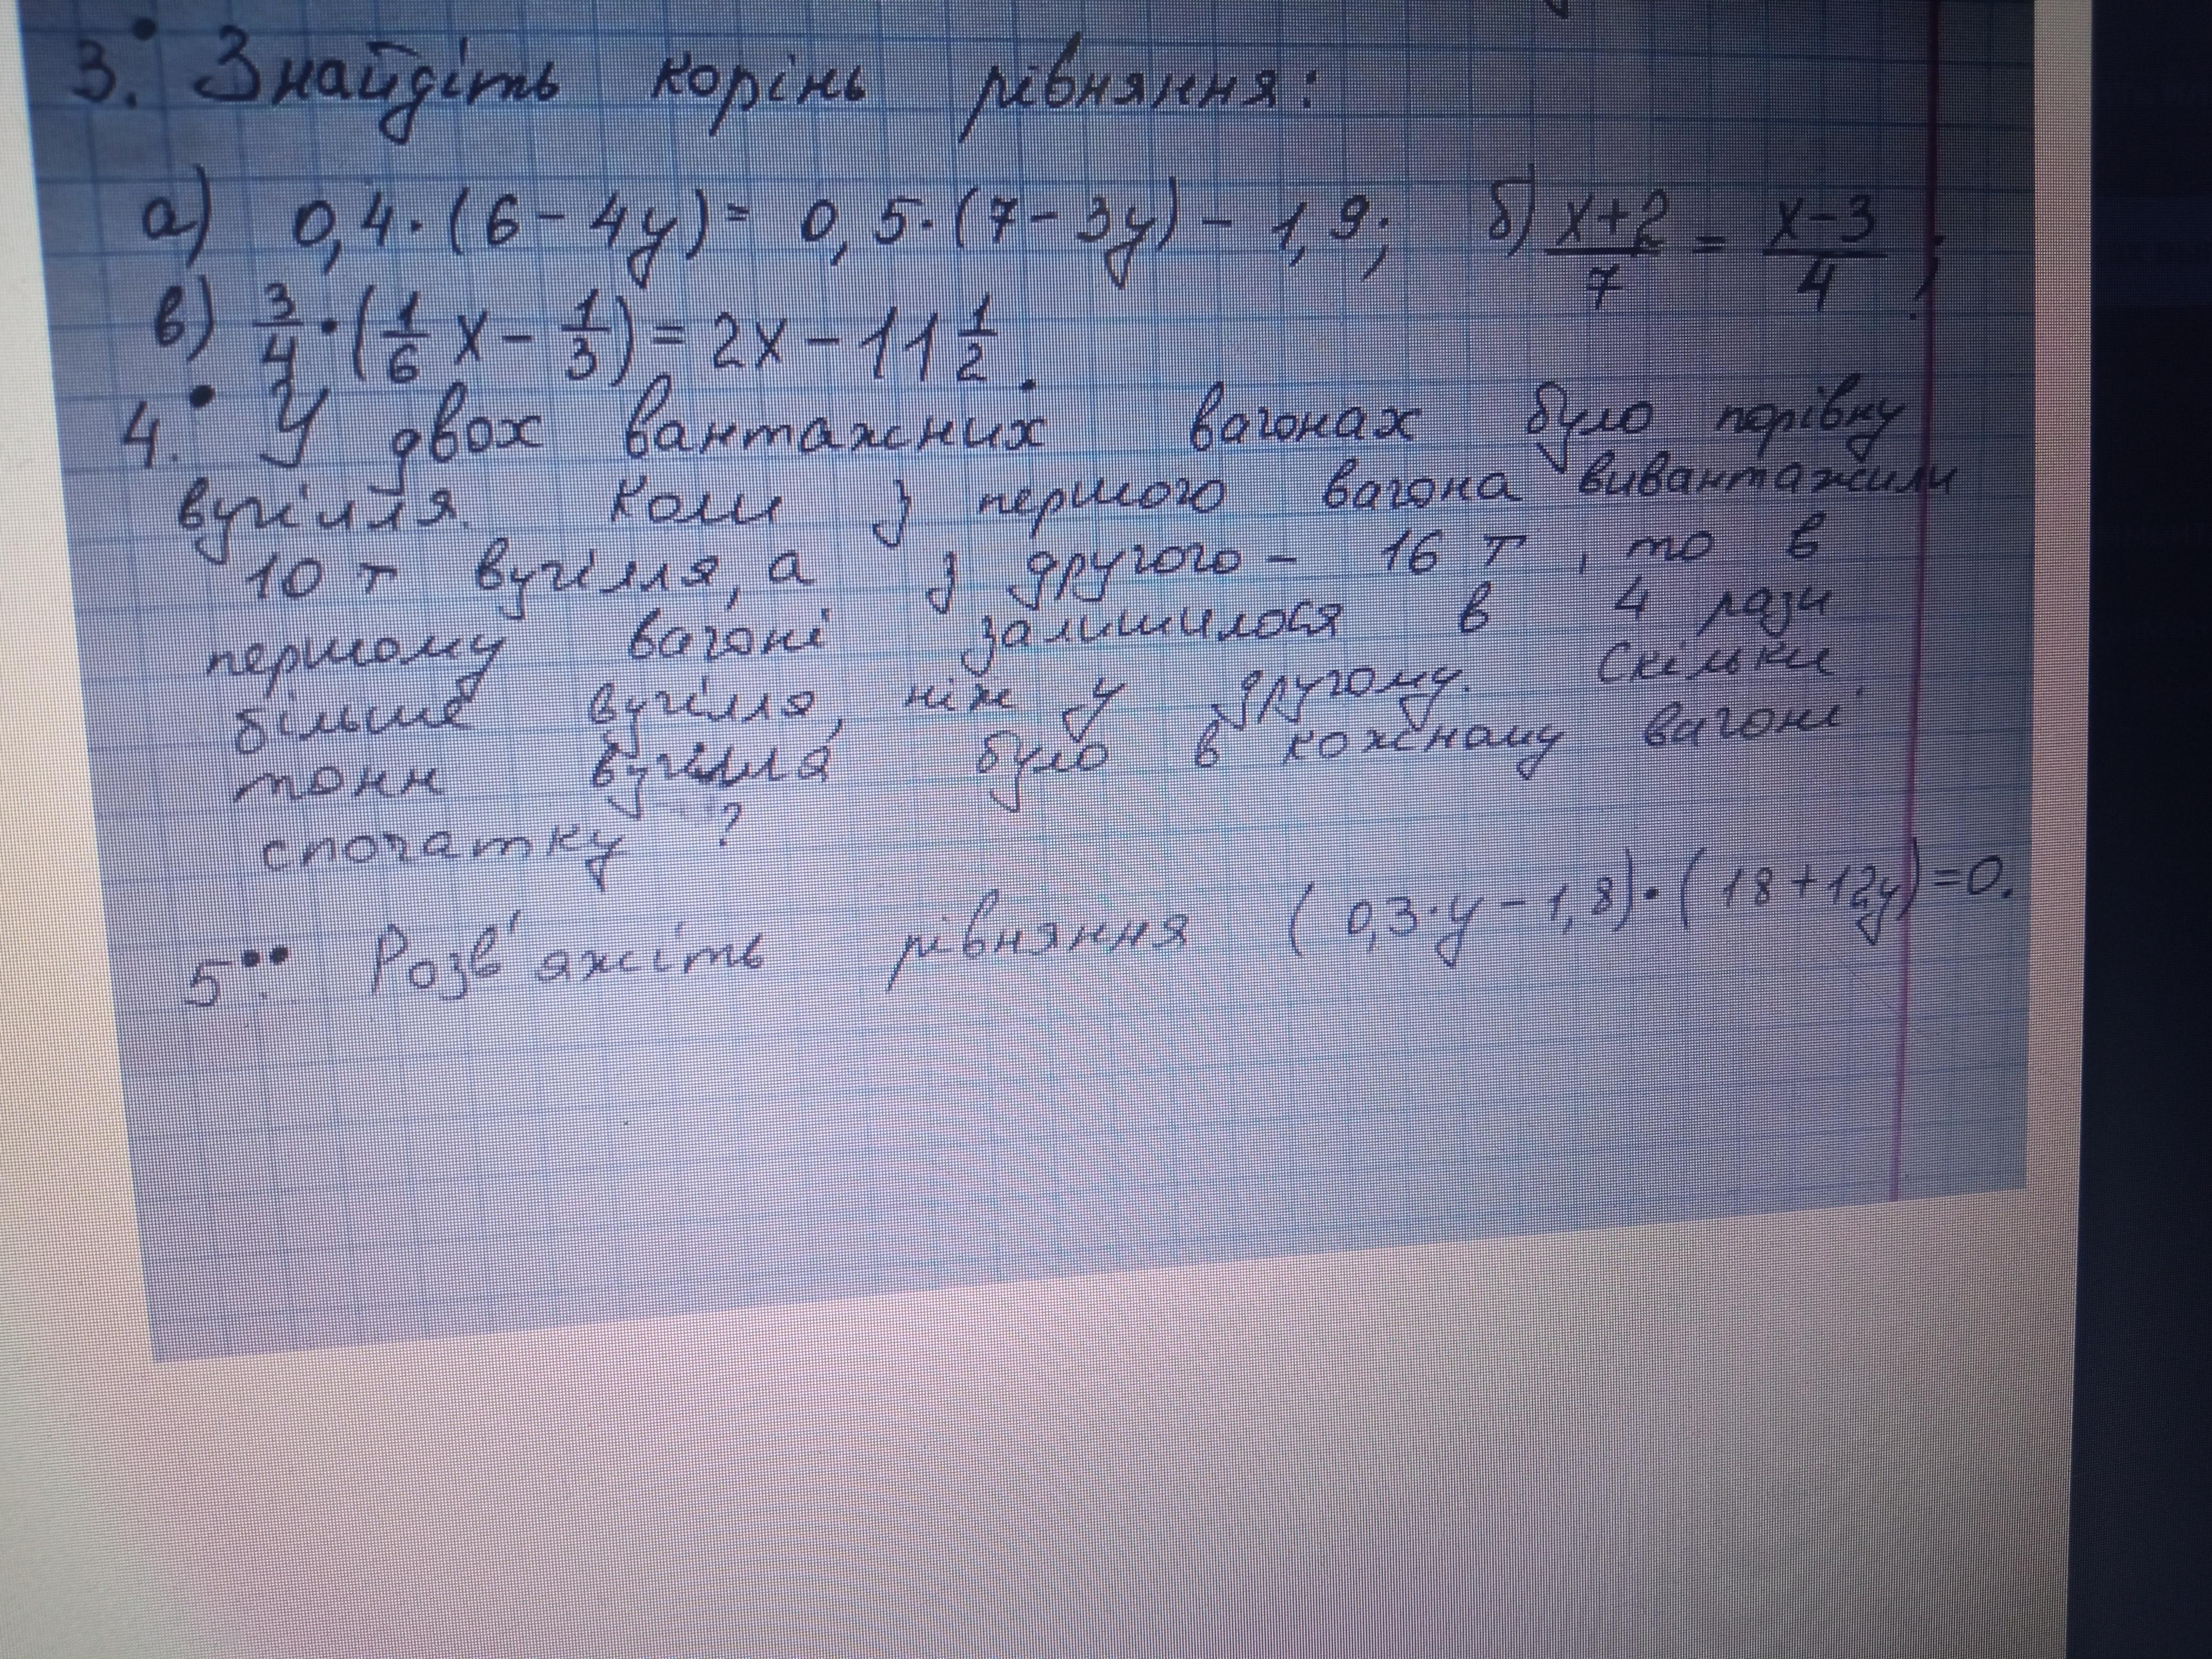 3.• Знайдіть корінь рівняння:
а) 0,4·(6-4y)= 0,5·(7-3y)-1,9; б) (x+2)/7 = (x-3)/4;
в) 3/4·(1/6 x - 1/3)= 2x-11 1/2.
4.• У двох вантажних вагонах було порівну
вугілля. Коли з першого вагона вивантажили
10 т вугілля, а з другого - 16 т, то в
першому вагоні залишилося в 4 рази
більше вугілля, ніж у другому. Скільки
тонн вугілля було в кожному вагоні
спочатку?
5.•• Розв'яжіть рівняння (0,3·y-1,8)·(18+12y)=0.